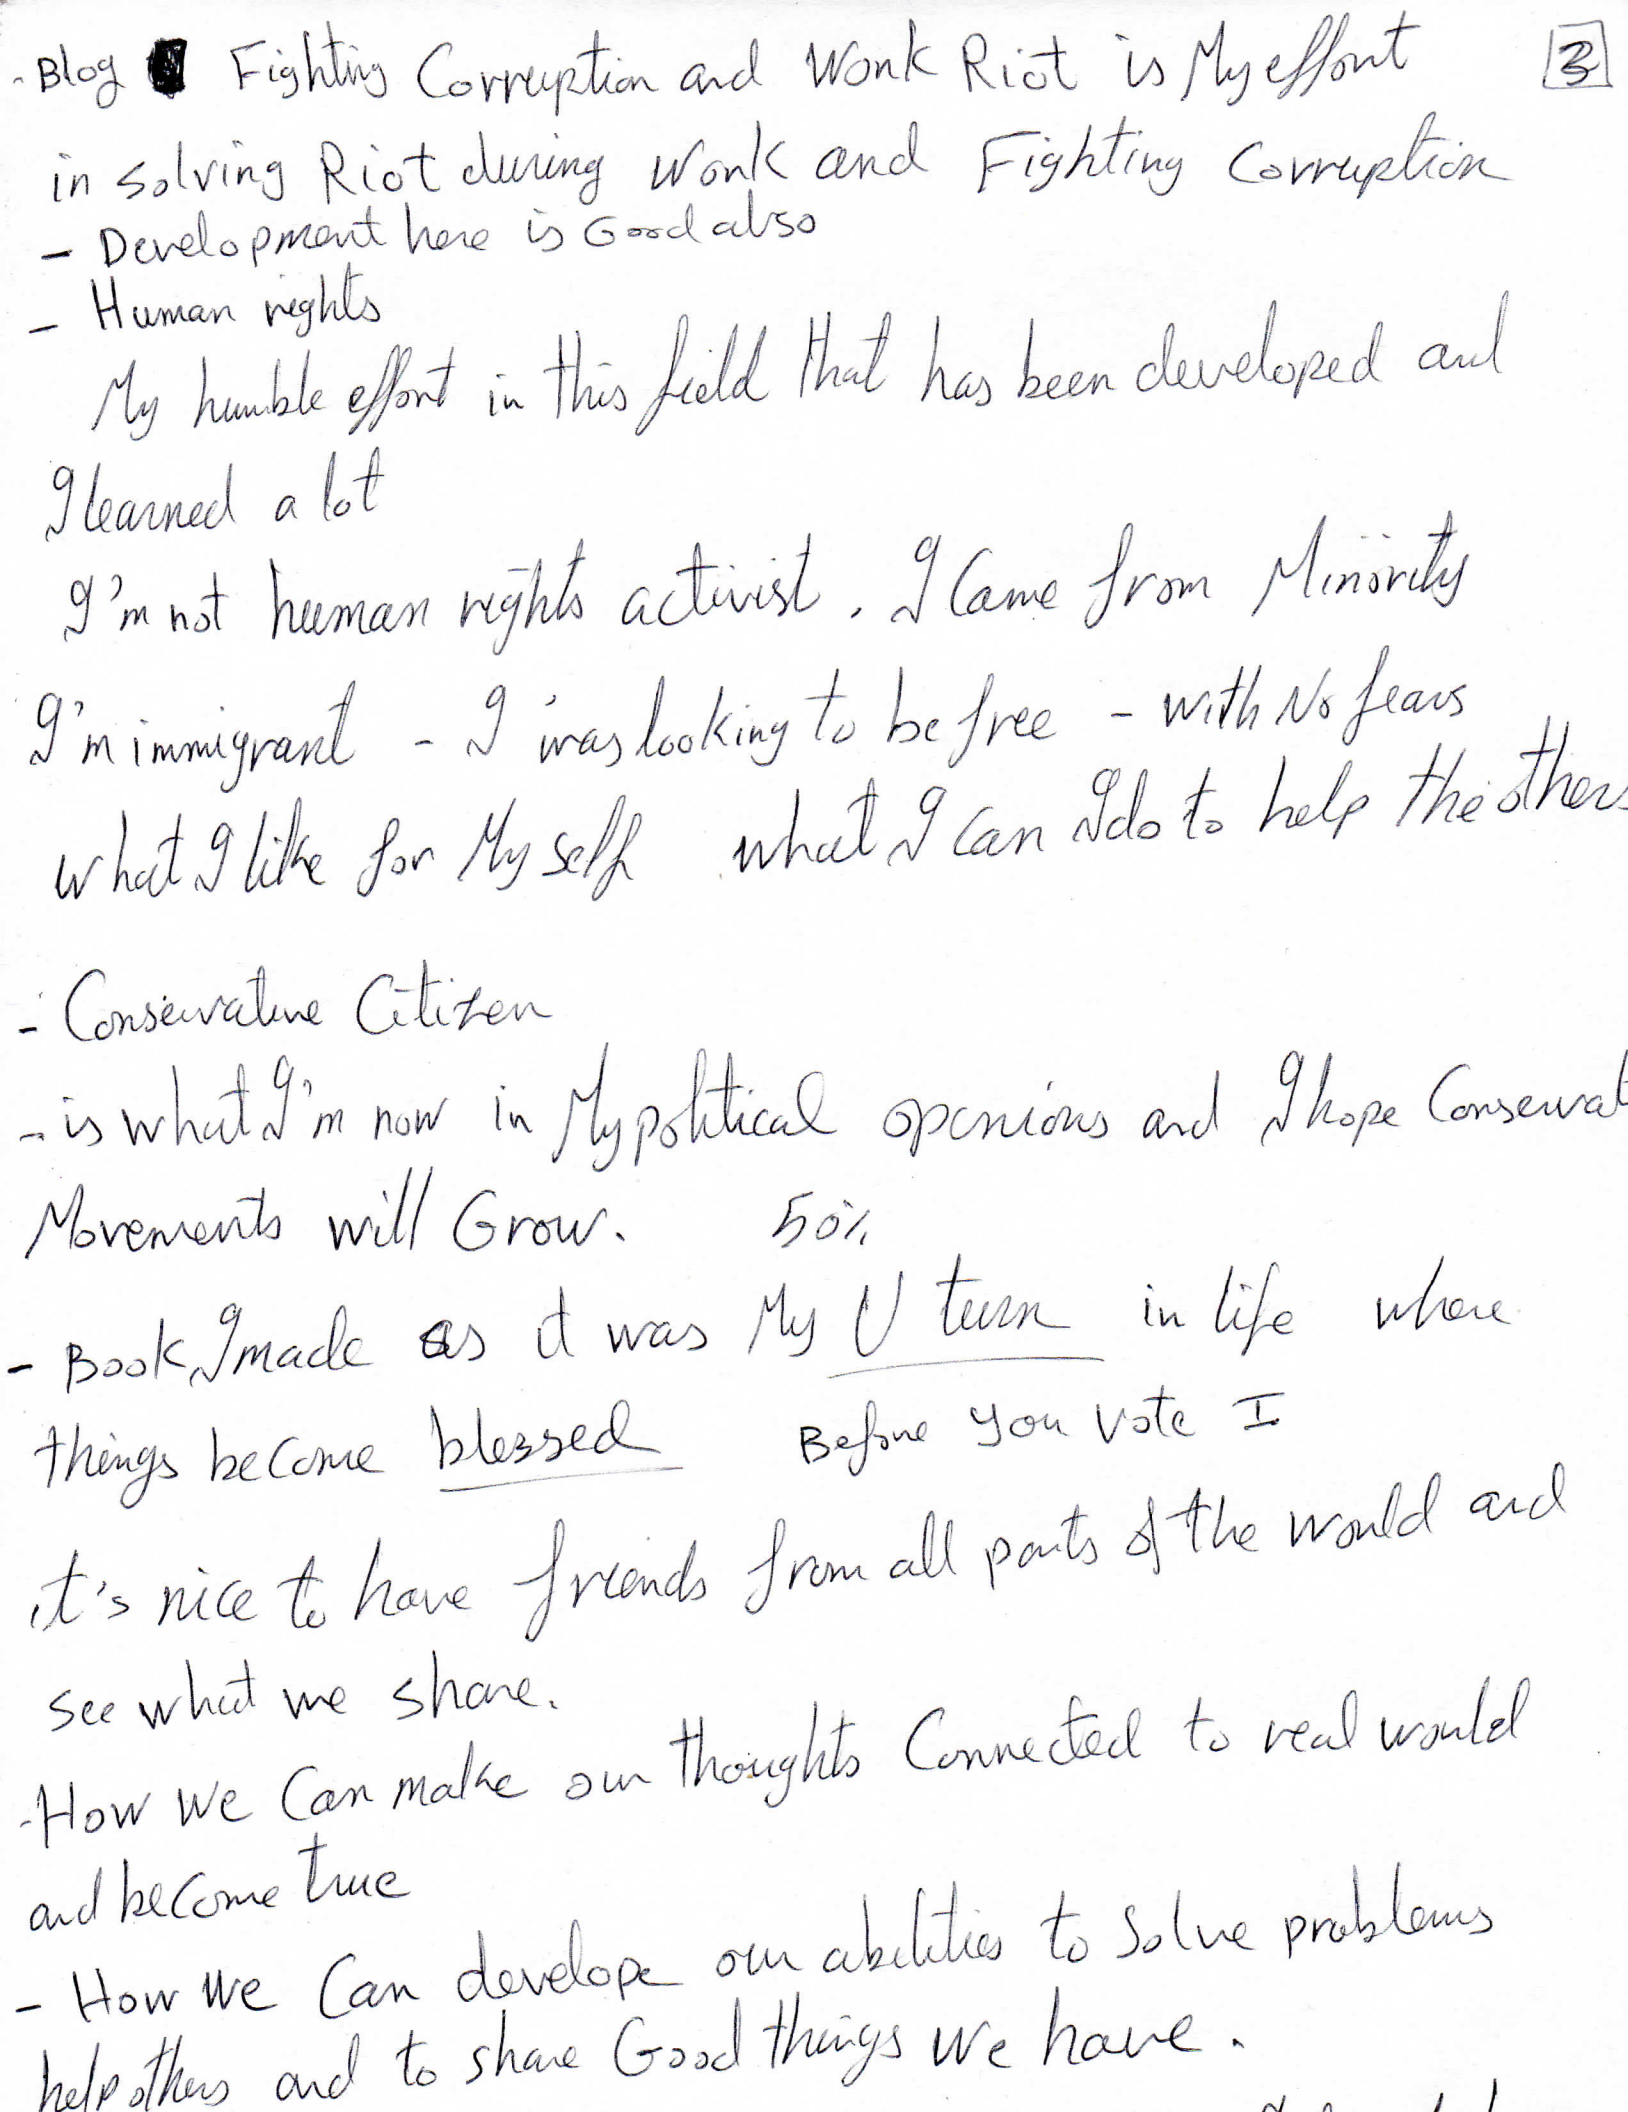 - Blog Fighting Corruption and Work Riot is My effort [3]
in solving Riot during work and Fighting Corruption
- Development here is Good also
- Human rights
My humble effort in this field that has been developed and
I learned a lot
I'm not human rights activist. I Came from Minority
I'm immigrant - I was looking to be free - with No fears
what I like for My self what I can I do to help the others
- Conservative Citizen
- is what I'm now in My political openions and I hope Conservat
Movements will Grow. 50%
- Book I made as it was My U turn in life where
things become blessed Before you vote I
it's nice to have friends from all parts of the world and
see what we share.
- How we Can make our thoughts Connected to real would
and become true
- How we Can develope our abilities to Solve problems
help others and to share Good things we have.